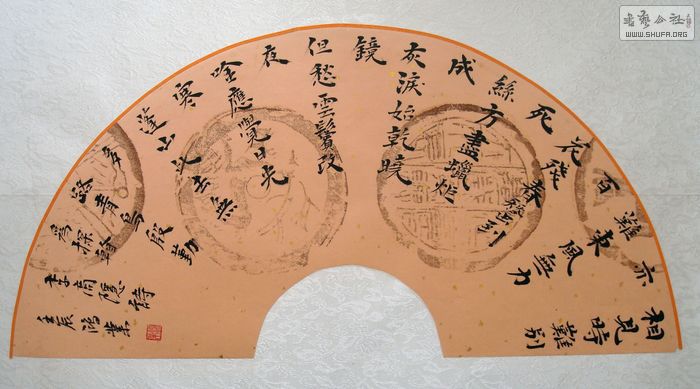 相見時難別
亦
難東風無力
百
花殘春蠶到
死
絲方盡蠟炬
成
灰淚始乾曉
鏡
但愁雲鬢改
夜
吟應覺月光
寒
蓬山此去無
多
路青鳥殷勤
為探看
李商隱詩
壬辰鴻業
WWW.SHUFA.ORG